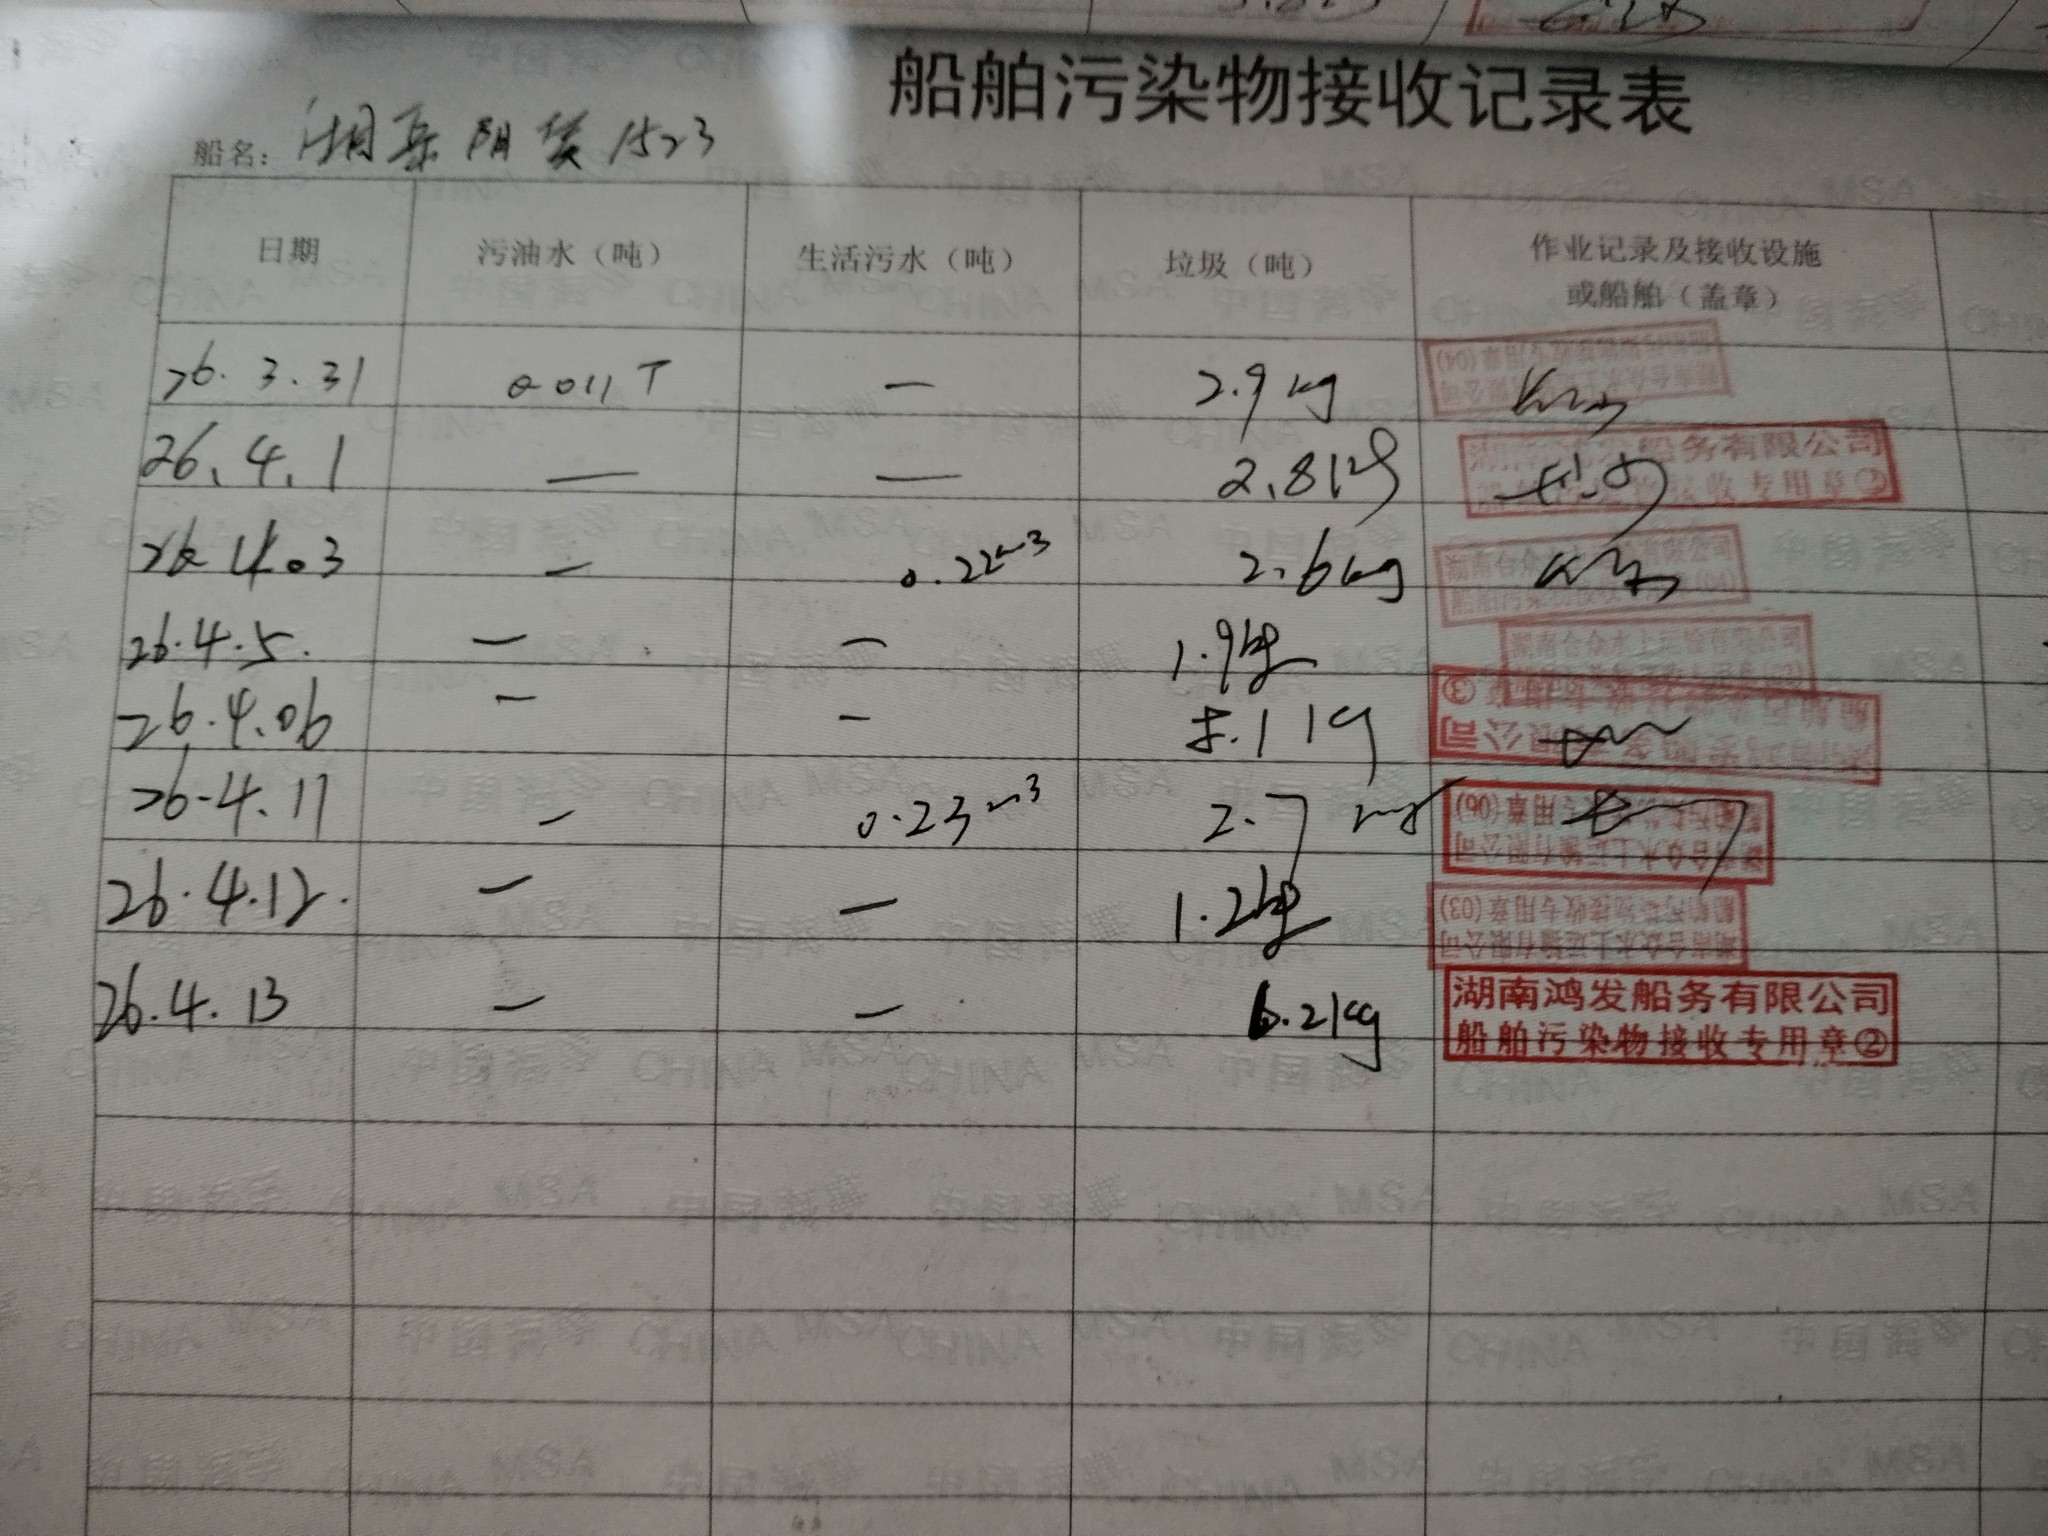 船舶污染物接收记录表
船名: 湘岳阴货1523
日期 污油水（吨） 生活污水（吨） 垃圾（吨） 作业记录及接收设施
或船舶（盖章）
26.3.31 0.011T — 2.9kg
26.4.1 — — 2.8kg 船务有限公司
专用章
26.4.03 — 0.22m3 2.6kg 湖南合众
26.4.5. — — 1.9kg 湖南合众水上运输有限公司
26.4.06 — — 5.1kg ③
公司
26.4.11 — 0.23m3 2.7 专用章(06)
合众水上运输有限公司
26.4.12. — — 1.2kg 船舶污染物接收专用章(03)
湖南合众水上运输有限公司
26.4.13 — — 6.2kg 湖南鸿发船务有限公司
船舶污染物接收专用章②